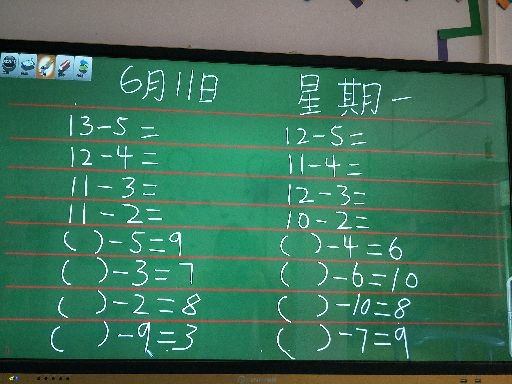 6月11日 星期一
13-5= 12-5=
12-4= 11-4=
11-3= 12-3=
11-2= 10-2=
( )-5=9 ( )-4=6
( )-3=7 ( )-6=10
( )-2=8 ( )-10=8
( )-9=3 ( )-7=9